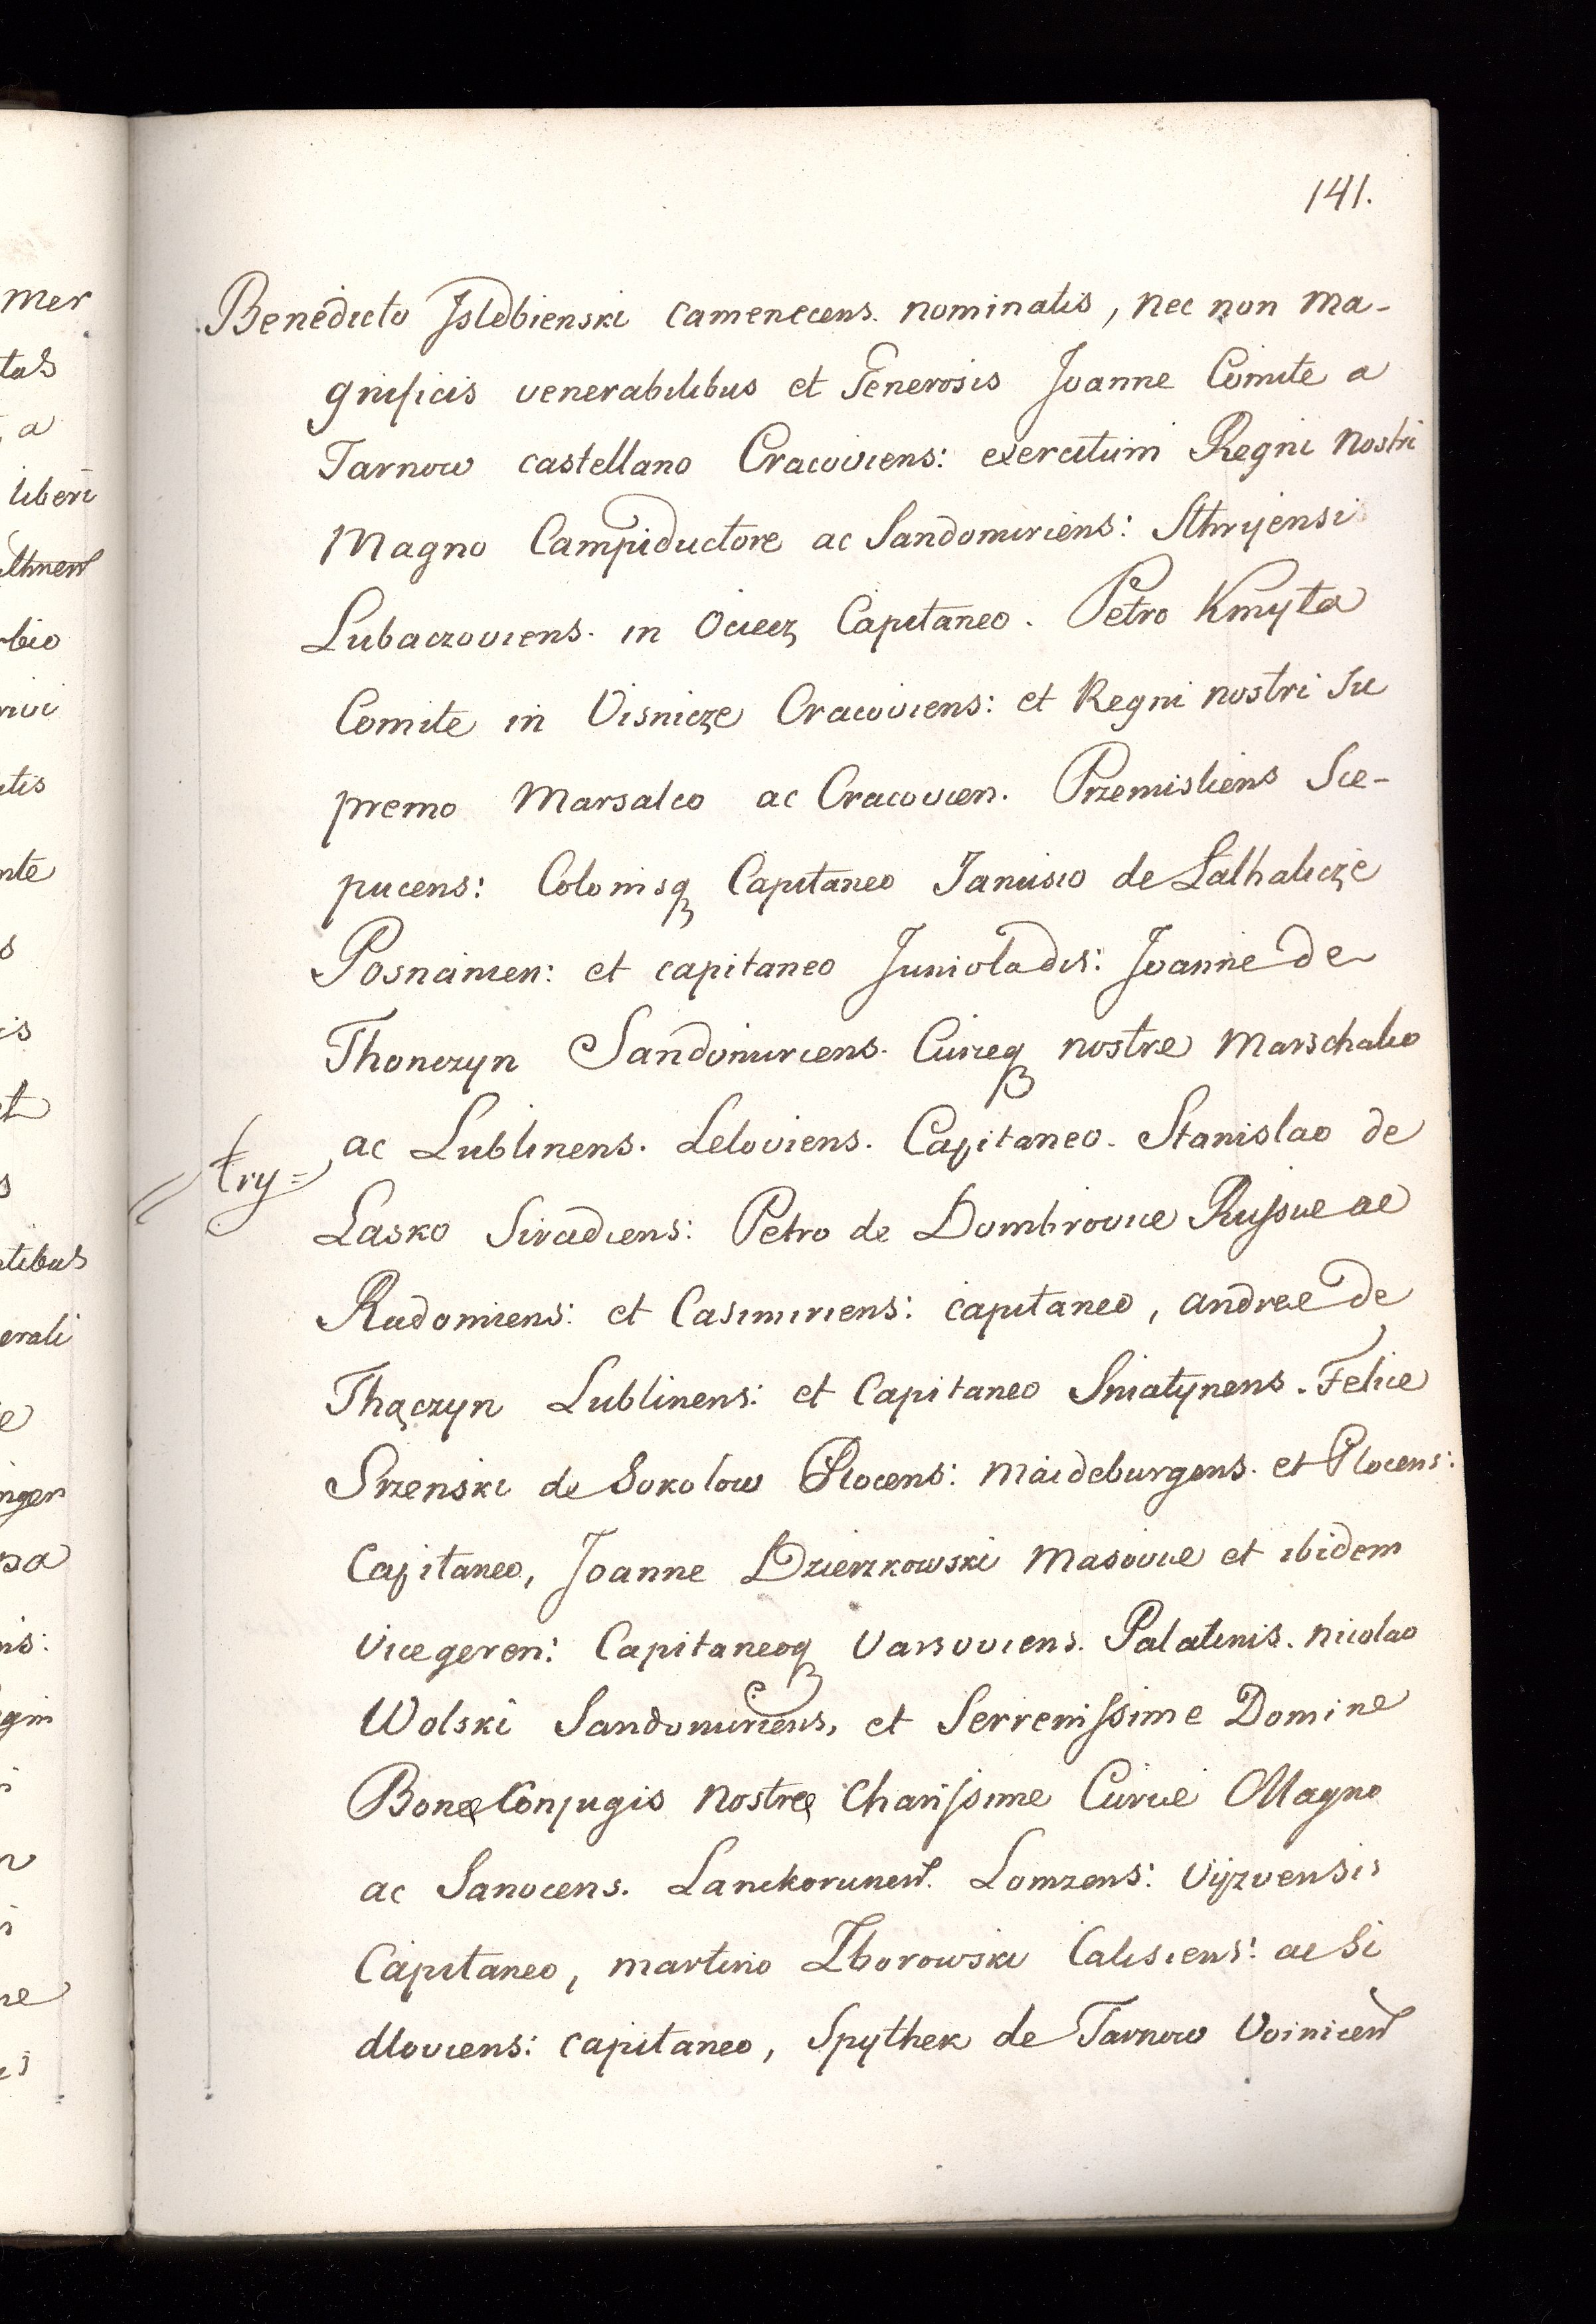 141.
Benedicto Jsldbienski camenecens. nominatis, nec non ma-
gnificis venerabilibus et Generosis Joanne Comite a
Tarnow castellano Cracoviens: exercituum Regni Nostri
Magno Campiductore ac Sandomiriens: Sthryensi
Lubaczoviens. in Ociecz Capitaneo. Petro Kmyta
Comite in Visnicze Cracoviens: et Regni nostri Su
premo Marsalco ac Cracovien. Przemisliens Sce-
pucens: Colonisq Capitaneo Janusio de Lathalicze
Posnanien: et capitaneo Junivladis: Joanne de
Thonczyn Sandomiriens. Curieq nostre Marschalco
ac Lublinens. Leloviens. Capitaneo. Stanislao de
try=
Lasko Siradiens: Petro de Dombrovice Russie ac
Radomiens: et Casimiriens: capitaneo, andree de
Thączyn Lublinens: et Capitaneo Sniatynens. Felice
Srzenski de Sokolow Plocens: Maideburgens. et Plocens:
Capitaneo, Joanne Dzierzkowski Masovie et ibidem
vicegeren: Capitaneoq Varsoviens. Palatinis. nicolao
Wolski Sandomiriens, et Serrenissime Domine
Bonę Conjugis Nostrę Charissime Curie Magno
ac Sanocens. Lanckorunen. Lomzens: Vyzvensis
Capitaneo, martino Zborowski Calisiens: ac Si
dloviens: capitaneo, Spythek de Tarnow Voinicen
mer
tas
a
liberi
rbio
rivi
nte
et
tibus
erali
nger